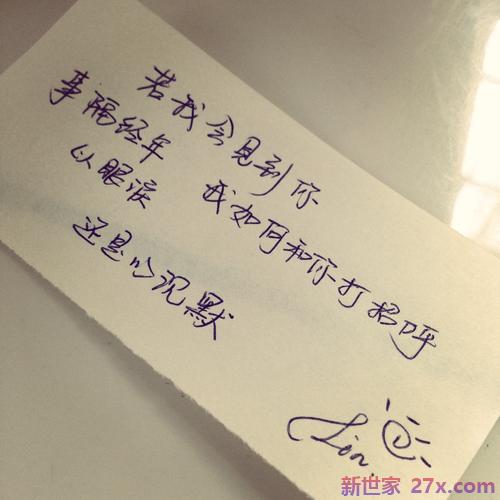 若我会见到你
事隔经年 我如何和你打招呼
以眼泪
还是以沉默
Lin.
新世家 27x.com